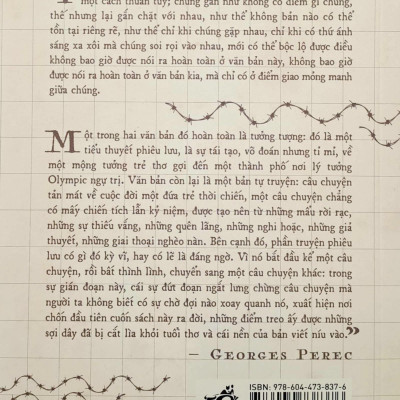 một cách thuần túy; chúng gần như không có điểm gì chung,
thế nhưng lại gắn chặt với nhau, như thể không bản nào có thể
tồn tại riêng rẽ, như thể chỉ khi chúng gặp nhau, chỉ khi có thứ ánh
sáng xa xôi mà chúng soi rọi vào nhau, mới có thể bộc lộ được điều
không bao giờ được nói ra hoàn toàn ở văn bản này, không bao giờ
được nói ra hoàn toàn ở văn bản kia, mà chỉ có ở điểm giao mỏng manh
giữa chúng.
Một trong hai văn bản đó hoàn toàn là tưởng tượng: đó là một
tiểu thuyết phiêu lưu, là sự tái tạo, võ đoán nhưng tỉ mỉ, về
một mộng tưởng trẻ thơ gợi đến một thành phố nơi lý tưởng
Olympic ngự trị. Văn bản còn lại là một bản tự truyện: câu chuyện
tản mát về cuộc đời một đứa trẻ thời chiến, một câu chuyện chẳng
có mấy chiến tích lẫn kỷ niệm, được tạo nên từ những mẩu rời rạc,
những sự thiếu vắng, những quên lãng, những nghi hoặc, những giả
thuyết, những giai thoại nghèo nàn. Bên cạnh đó, phần truyện phiêu
lưu có gì đó kỳ vĩ, hay có lẽ là đáng ngờ. Vì nó bắt đầu kể một câu
chuyện, rồi bất thình lình, chuyển sang một câu chuyện khác: trong
sự gián đoạn này, cái sự đứt đoạn ngắt lưng chừng câu chuyện mà
người ta không biết có sự chờ đợi nào xoay quanh nó, xuất hiện nơi
chốn đầu tiên cuốn sách này ra đời, những điểm treo ấy được những
sợi dây đã bị cắt lìa khỏi tuổi thơ và cái nền của bản viết níu vào.”
– GEORGES PEREC
ISBN: 978-604-473-837-6